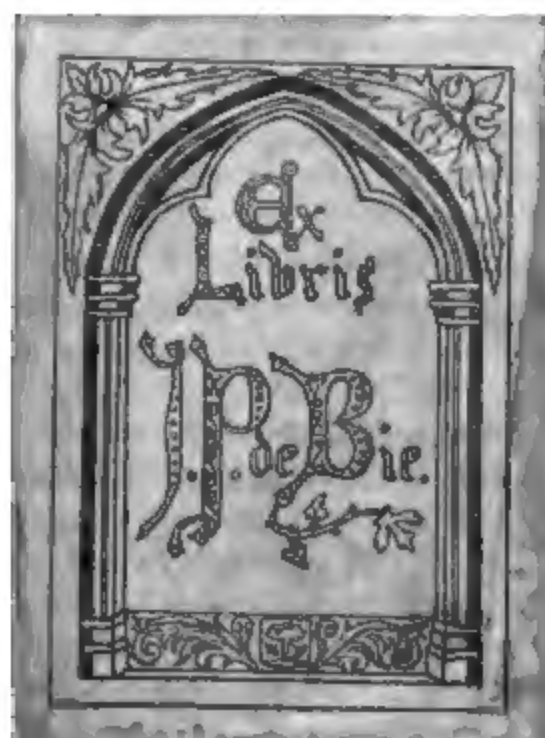 Ex
Libris
J.P. de Bie.